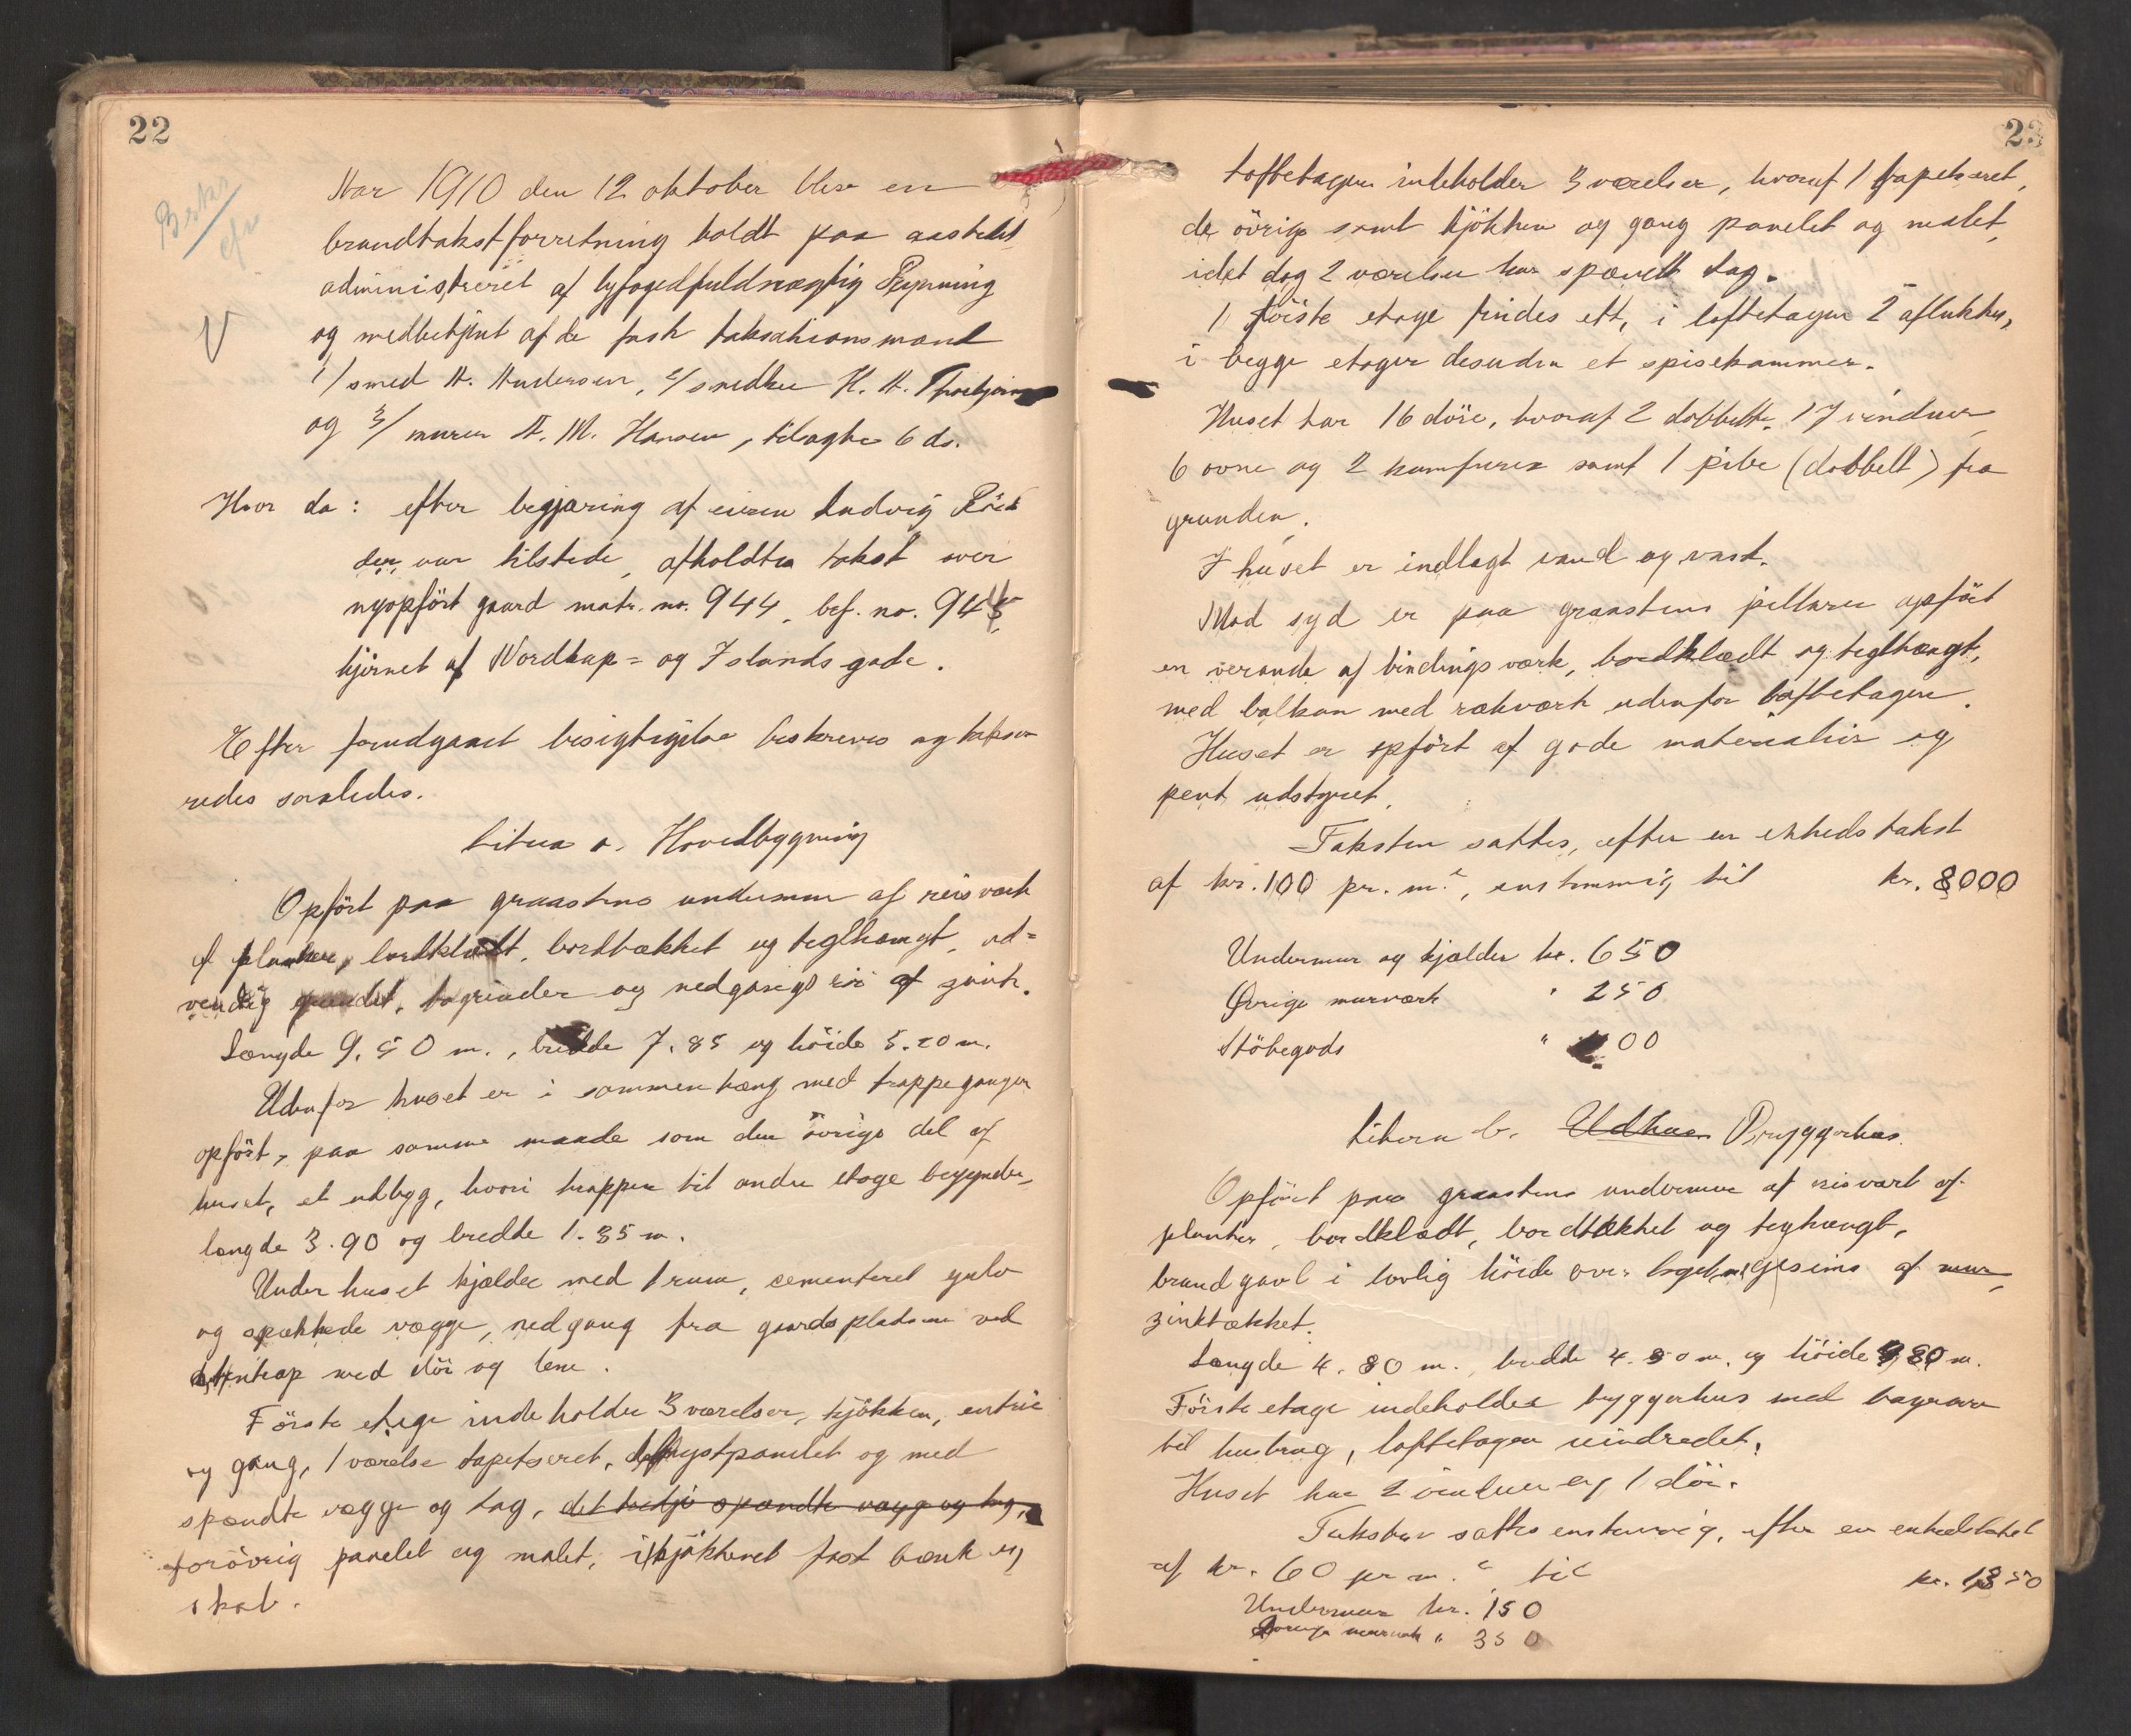 22
Aar 1910 den 12 oktober blev en
brandtakstforretning holdt paa aastedet
administreret af byfogedfuldmægtig Rynning
og medbetjent af de faste taksationsmænd
1/ smed A. Andersen, 2/ snedker K. A. Thorbjörnsen
og 3/ murer A. M. Hansen, tilsagte 6 ds.
Hvor da: efter begjæring af eieren Ludvig
der var tilstede, afholdtes takst over
nyopfört gaard matr. no. 944, bef. no. 944
hjörnet af Nordkap= og Islandsgade.
Efter foredgaaet besigtigelse beskreves og takse-
redes saaledes.
Litera a. Hovedbygning
Opfört paa graastens undermur af reisverk
af planker, bordklædt, bordtækket og teglhængt, ud=
vendig grundet, tagrender og nedgangsrör af zink.
Længde 9.50 m., bredde 7.85 og höide 5.20 m.
Udenfor huset er i sammenhæng med trappegangen
opfört, paa samme maade som den övrige del af
huset, et udbygg, hvori trappen til anden etage begynder,
længde 3.90 og bredde 1.35 m.
Under huset kjælder med 1 rum, cementeret gulv
og spækkede vægge, nedgang fra gaardspladsen ved
stentrap med dör og lem.
Förste etage indeholder 3 værelser, kjökken, entrée
og gang, 1 værelse tapetseret, brystpanelet og med
spændte vægge og tag, det tredje spændte vægge og tag,
forövrig panelet og malet, i kjökkenet fast bænk og
skab.
23
Loftetagen indeholder 3 værelser, hvoraf 1 tapetseret,
de övrige samt kjökken og gang panelet og malet,
idet dog 2 værelser har spændt tag.
I förste etage findes ett, i loftetagen 2 aflukker,
i begge etager desuden et spisekammer.
Huset har 16 döre, hvoraf 2 dobbelte, 17 vinduer,
6 ovne og 2 komfurer samt 1 pibe (dobbelt) fra
grunden.
I huset er indlagt vand og vask.
Mod syd er paa graastens pillarer opfört
en veranda af bindingsværk, bordklædt og teglhængt,
med balkon med rækværk udenfor loftetagen.
Huset er opfört af gode materialier og
pent udstyret.
Taksten sattes, efter en enhedstakst
af kr. 100 pr. m.², enstemmig til kr. 8000
Undermur og kjælder kr. 650
Övrige murværk " 250
Stöbegods " 00
Litera b. Udhus Bryggerhus.
Opfört paa graastens undermur af reisværk af
planker, bordklædt, bordtækket og teghængt,
brandgavl i lovlig höide over taget, gesims af mur,
zinktækket.
Længde 4.80 m., bredde 4.50 m. og höide 80 m.
Förste etage indeholder byggerhus med bagerovn
til husbrug, loftetagen uindredet.
Huset har 2 vinduer og 1 dör.
Taksten sattes enstemmig, efter en enhedstakst
af kr. 60 pr m.² til kr. 1350
Undermur kr. 150
Övrige murværk " 350